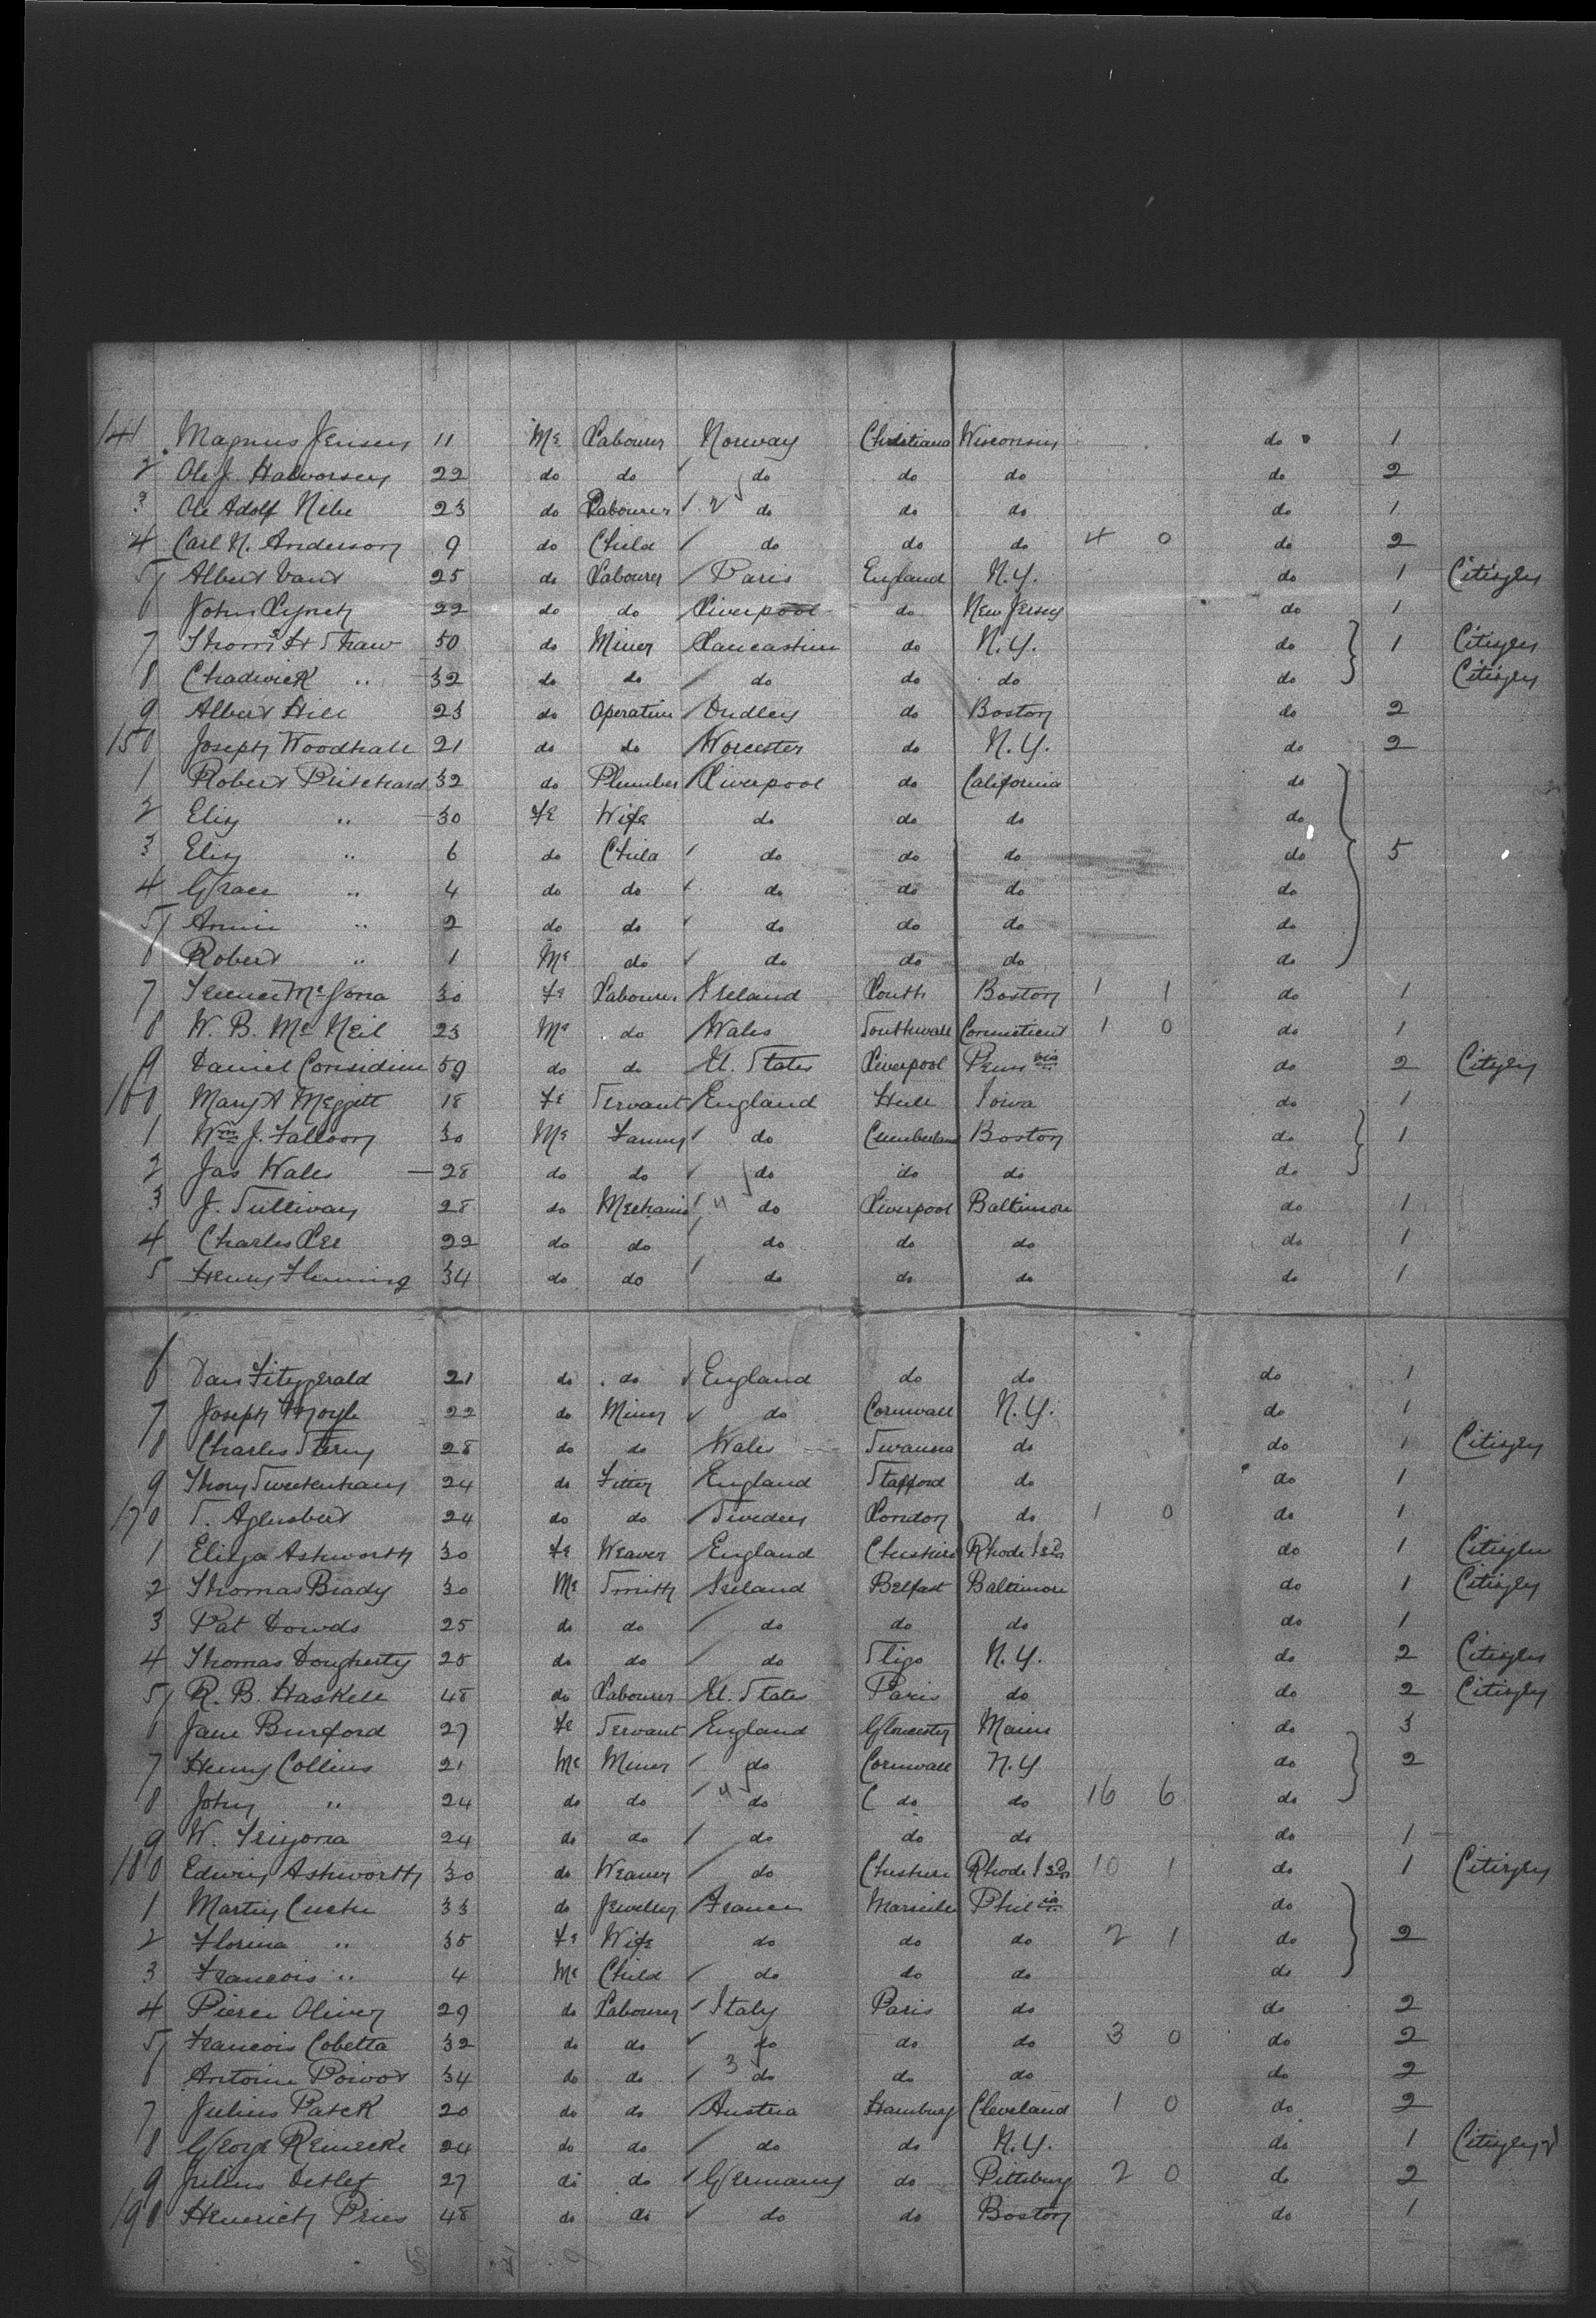 141 Magnus Jensen 11 Me Labourer Norway Christiana Wisconsin do 1
2 Ole J. Halvorsen 22 do do do do do do 2
3 Ole Adolf 23 do Labourer 2 do do do do 1
4 Carl N. Anderson 9 do Child do do do 4 0 do 2
5 Albert 25 do Labourer Paris England N.Y. do 1 Citizen
6 John Lynch 22 do do Liverpool do New Jersey do 1
7 Thoms H Shaw 50 do Miner Lancashire do N.Y. do 1 Citizen
8 Chadwick " 32 do do do do do do Citizen
9 Albert Hill 23 do Operative Dudley do Boston do 2
150 Joseph Woodhall 21 do do Worcester do N.Y. do 2
1 Robert Pritchard 32 do Plumber Liverpool do California do
2 Eliz " 30 Fe Wife do do do do
3 Eliz " 6 do Child do do do do 5
4 Grace " 4 do do do do do do
5 Annie " 2 do do do do do do
6 Robert " 1 Me do do do do do
7 30 Fe Labourer Ireland Louth Boston 1 1 do 1
8 W. B. Mc Neil 23 Me do Wales Southwall Conneticut 1 0 do 1
9 Daniel Considine 59 do do U. States Liverpool Penn do 2 Citizen
160 Mary A Meggitt 18 Fe Servant England Hull Iowa do 1
1 Wm J. Falloon 30 Me do Cumberland Boston do 1
2 Jas Wales 28 do do do do do do
3 J. Sullivan 28 do Mechanic 4 do Liverpool Baltimore do 1
4 Charles Lee 22 do do do do do do 1
5 Henry Fleming 34 do do do do do do 1
6 Dan Fitzgerald 21 do do England do do do 1
7 Joseph Moyle 22 do Miner do Cornwall N.Y. do 1
8 Charles 28 do do Wales Swansea do do 1 Citizen
9 Thom Tweetenham 24 do Fitter England Stafford do do 1
170 24 do do Sweden London do 1 0 do 1
1 Eliza Ashworth 30 Fe Weaver England Cheshire Rhode Isd do 1 Citizen
2 Thomas Brady 30 Me Smith Ireland Belfast Baltimore do 1 Citizen
3 Pat Dowds 25 do do do do do do 1
4 Thomas Dougherty 25 do do do Sligo N.Y. do 2 Citizen
5 R. B. Haskell 48 do Labourer U. States Paris do do 2 Citizen
6 Jane Burford 27 Fe Servant England Gloucester Maine do 3
7 Henry Collins 21 Me Miner do Cornwall N.Y do 2
8 John " 24 do do 4 do do do 16 6 do
9 W. 24 do do do do do do 1
180 Edwin Ashworth 30 do Weaver do Cheshire Rhode Isd 10 1 do 1 Citizen
1 Martin 33 do Jeweller France Marseile Phil ia do
2 Florina " 35 Fe Wife do do do 2 1 do 2
3 Francois " 4 Me Child do do do do
4 Pierre Oliver 29 do Labourer Italy Paris do do 2
5 Francois Cobetta 32 do do do do do 3 0 do 2
6 Antoine 34 do do 3 do do do do 2
7 Julius Patck 20 do do Austria Hamburg Cleveland 1 0 do 2
8 George Reinecke 24 do do do do N.Y. do 1 Citizen
9 Julius Detlef 27 do do Germany do Pittsburg 2 0 do 2
190 Henerich Pries 48 do do do do Boston do 1